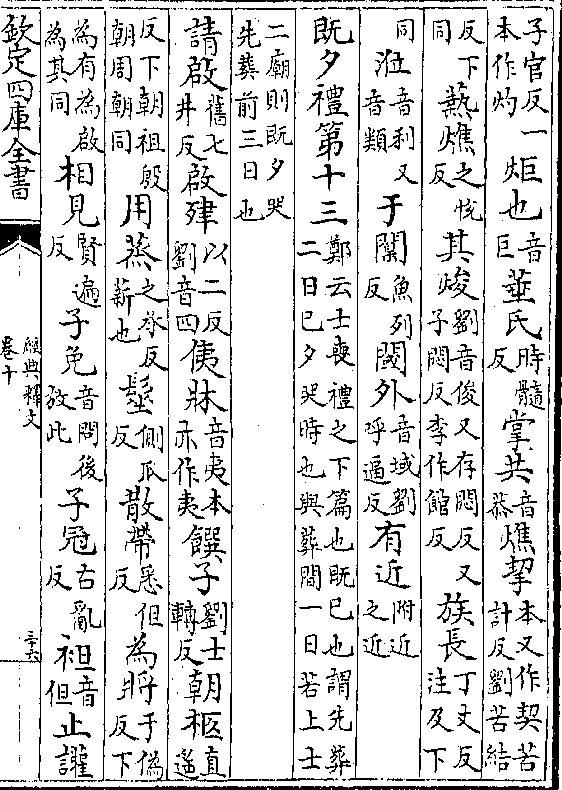 子官反一本作灼炬也音巨菙氏時髓反掌共音恭燋挈本又作契苦計反劉苦結
反下同爇燋之悅反其焌劉音俊又存悶反又子悶反李作館反族長丁丈反注及下
同涖音利又音類于闑魚列反閾外音域劉呼逼反有近附近之近
既夕禮第十三鄭云士喪禮之下篇也既已也謂先葬二日已夕哭時也與葬間一日若上士
二廟則既夕哭先葬前三日也
請啟舊七井反啟殔以二反劉音四侇牀音夷本亦作夷饌子劉士轉反朝柩直遙
反下朝祖殷朝周朝同用蒸之丞反薪也髽側瓜反散帶悉但反為將于偽反下
為有為啟為其同相見賢遍反子免音問後放此子冠古亂反袒音但止讙
欽定四庫全書
經典釋文
卷十
三十六